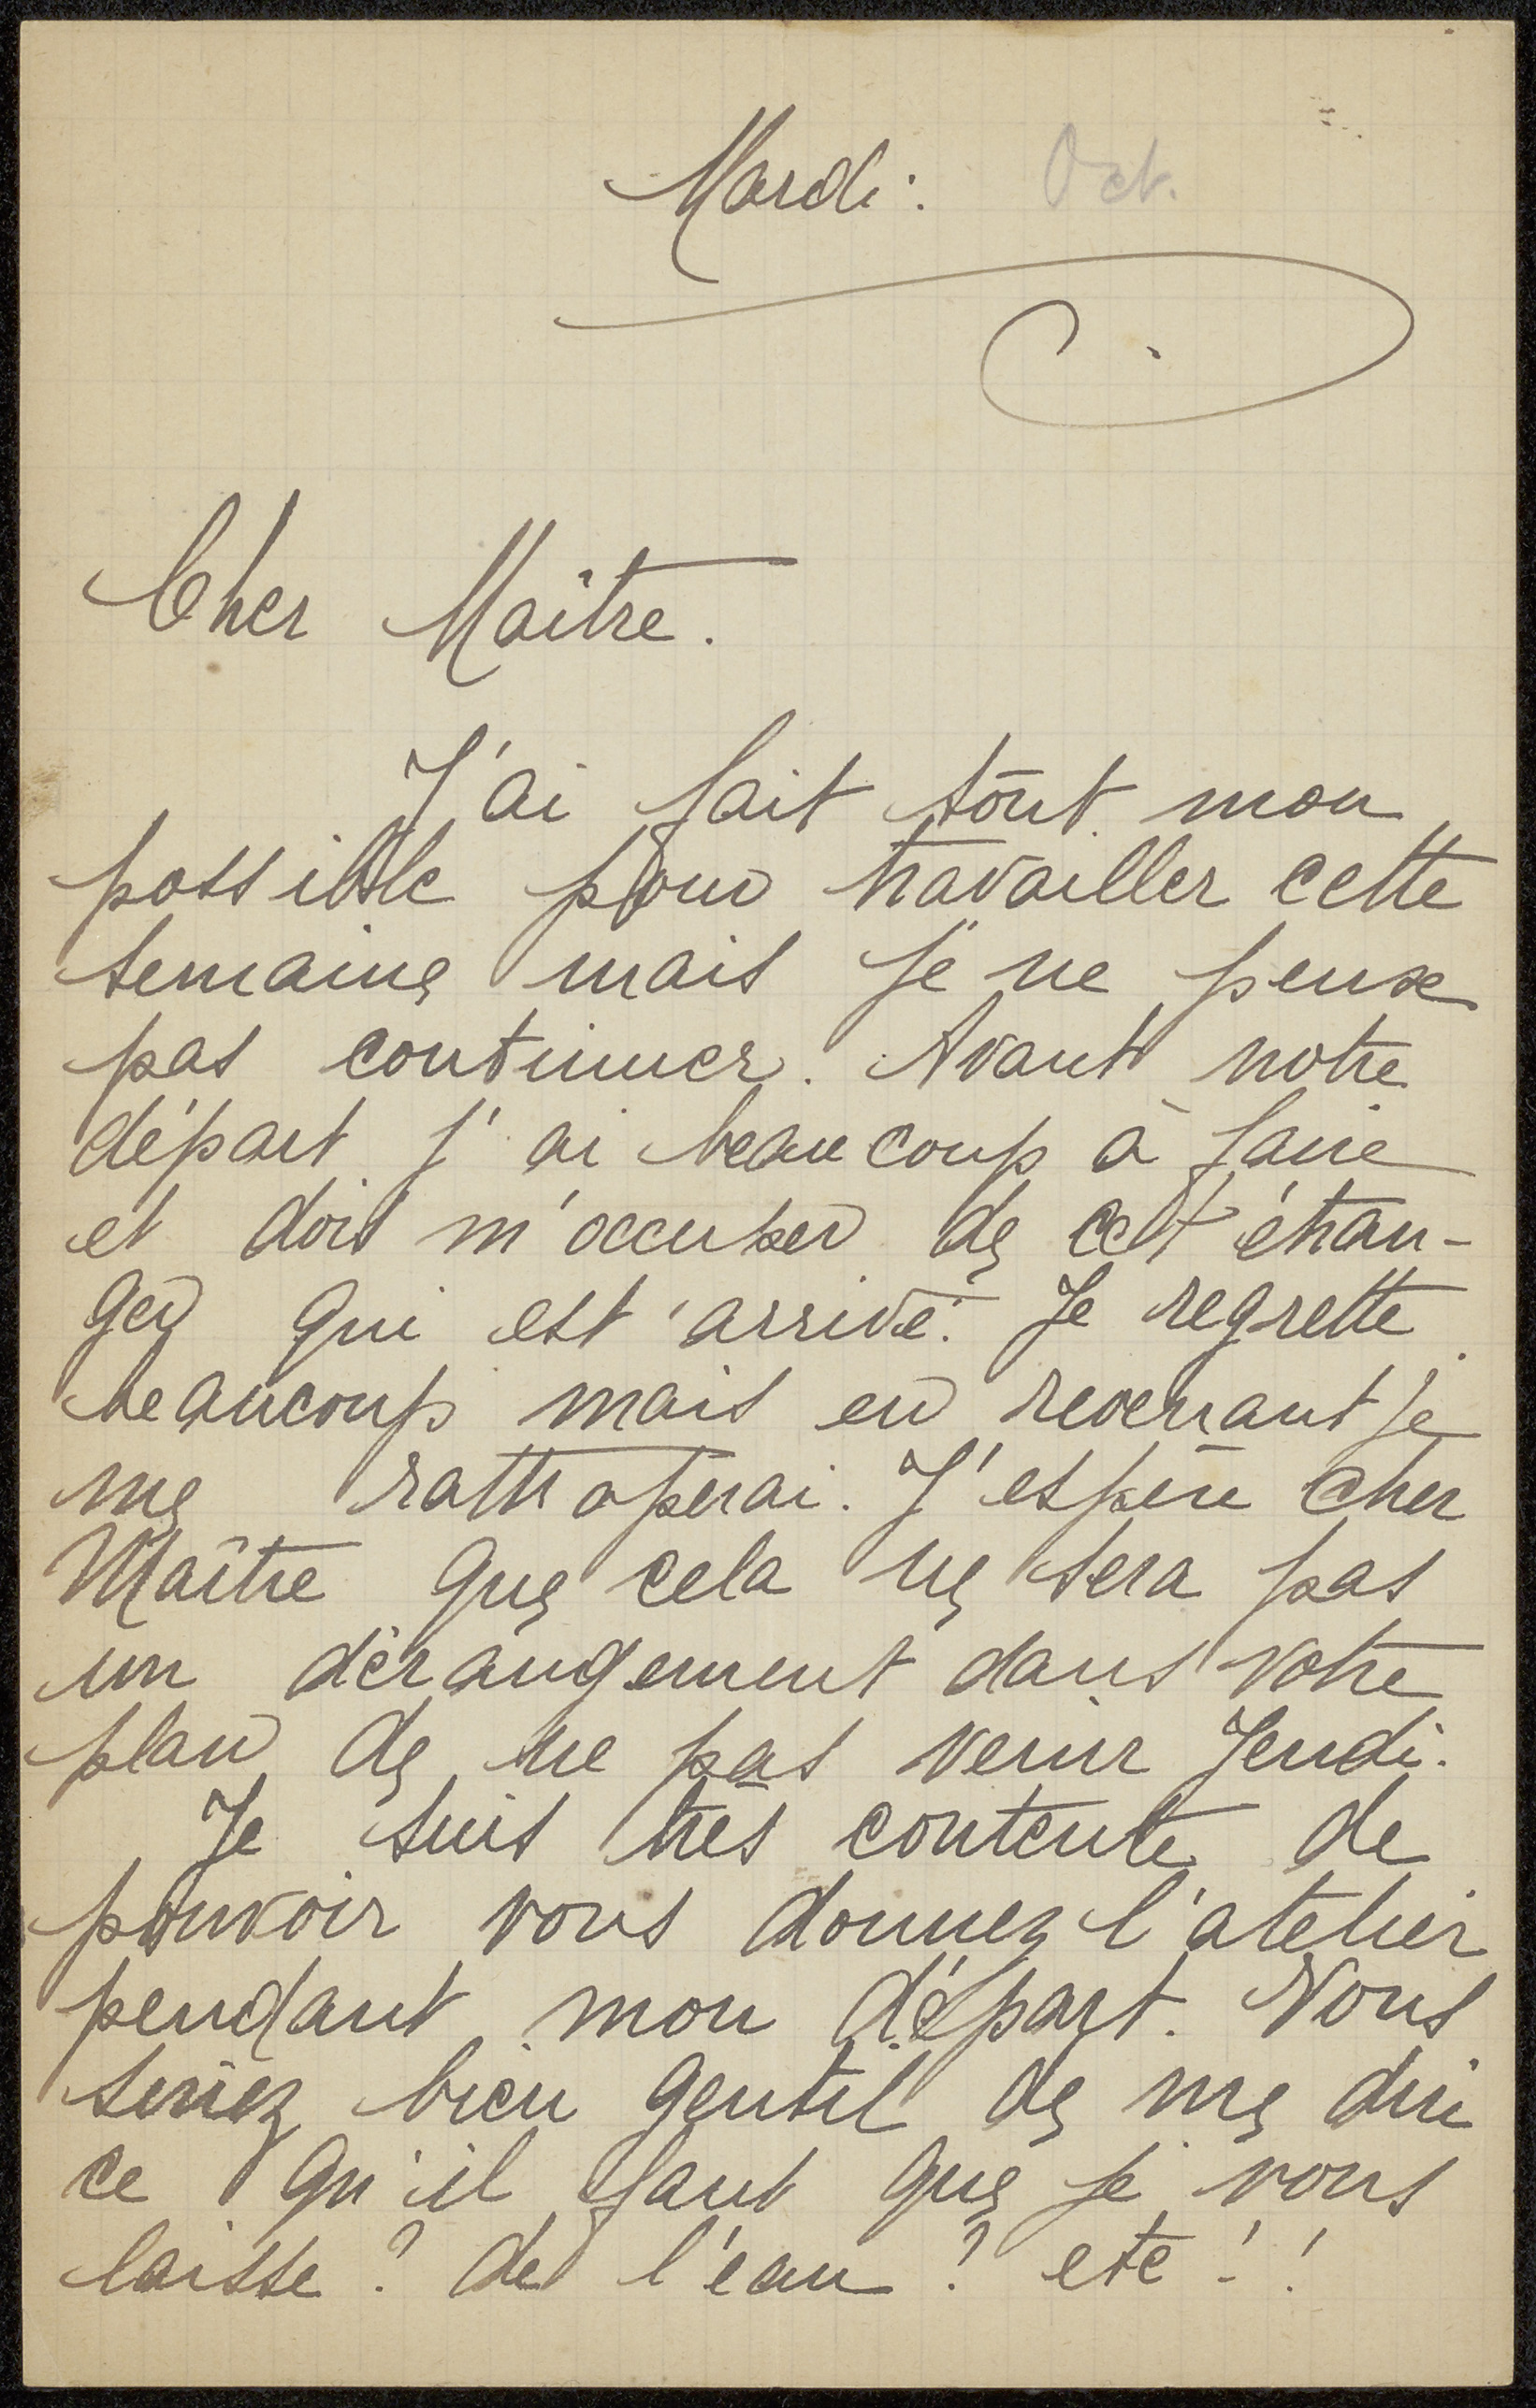 Mardi: Oct.
Cher Maître.
J'ai fait tout mon
possible pour travailler cette
semaine mais je ne peux
pas continuer. Avant notre
départ j'ai beaucoup à faire
et dois m'occuper de cet étran-
ger qui est arrivé. Je regrette
beaucoup mais en revenant je
me rattraperai. J'espère cher
Maître que cela ne sera pas
un dérangement dans votre
plan de ne pas venir Jeudi.
Je suis très contente de
pouvoir vous donner l'atelier
pendant mon départ. Vous
seriez bien gentil de me dire
ce qu'il faut que je vous
laisse? de l'eau? etc!!